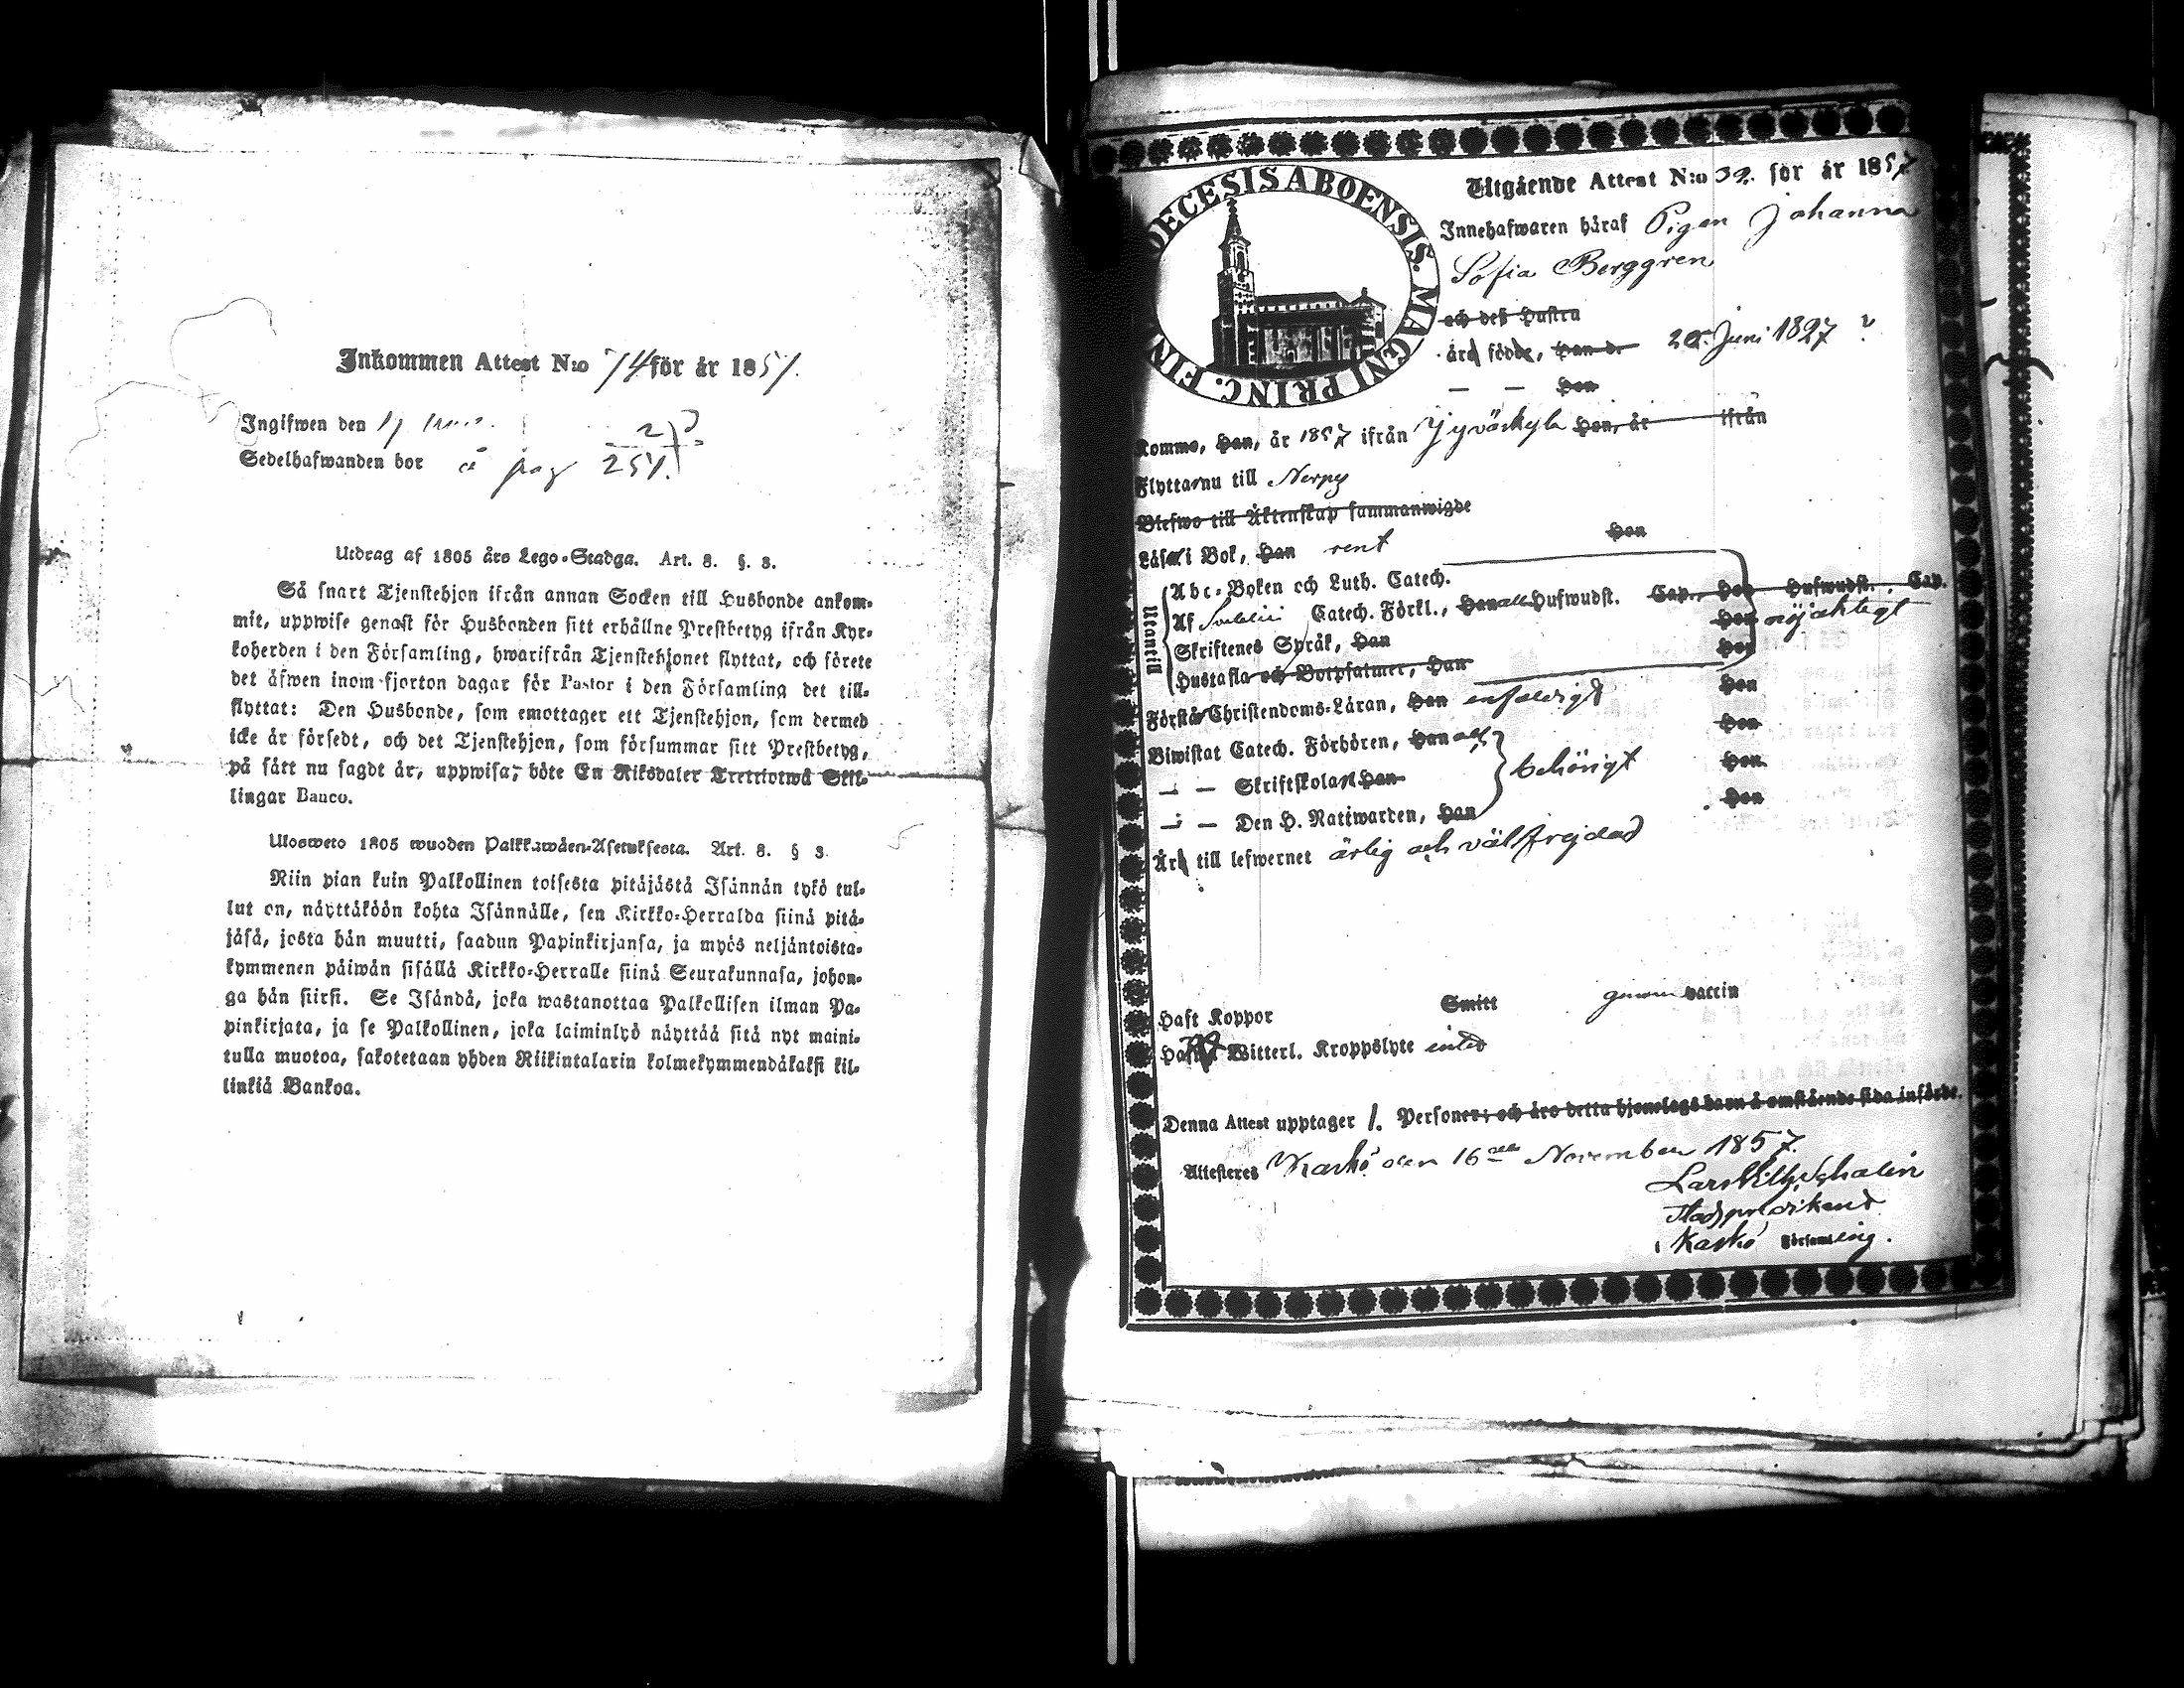 Inkommen Attest N:o 74 för år 1857.
Ingifwen den 17
Sedelhafwanden bor å pag 257.
Utdrag af 1805 års Lego-Stadga. Art. 8. §. 3.
Så snart Tjenstehjon ifrån annan Socken till Husbonde ankom-
mit, uppwise genast för Husbonden sitt erhållne Prestbetyg ifrån Kyr-
koherden i den Församling, hwarifrån Tjenstehjonet flyttat, och förete
det äfwen inom fjorton dagar för Pastor i den Församling det till-
flyttat: Den Husbonde, som emottager ett Tjenstehjon, som dermed
icke är försedt, och det Tjenstehjon, som försummar sitt Prestbetyg,
på sätt nu sagdt är, uppwisa, böte En Riksdaler Trettiotwå Skil-
lingar Banco.
Ulosweto 1805 wuoden Palkkawäen-Asetuksesta. Art. 8. § 3.
Niin pian kuin Palkollinen toisesta pitäjästä Isännän tykö tul-
lut on, näyttäköön kohta Isännälle, sen Kirkko-Herralda siinä pitä-
jäsä, josta hän muutti, saadun Papinkirjansa, ja myös neljäntoista-
kymmenen päiwän sisällä Kirkko-Herralle siinä Seurakunnasa, johon-
ga hän siirsi. Se Isändä, joka wastanottaa Palkollisen ilman Pa-
pinkirjata, ja se Palkollinen, joka laiminlyö näyttää sitä nyt maini-
tulla muotoa, sakotetaan yhden Riikintalarin kolmekymmendäkaksi kil-
linkiä Bankoa.
DECESIS ABOENSIS. MAGNI PRINC. FIN
Utgående Attest N:o 32. för år 1857
Innehafwaren häraf Pigan Johanna
Sofia Berggren
och deß Hustru
äro födde, Han d. 20 Juni 1827 ?
— — Hon
Komme, Han, år 1857 ifrån Jyväskyla Hon, år ifrån
Flytta nu till Nerpes
Blefwo till Äktenskap sammanwigde
Läsa i Bok, Han rent Hon
Utantill
Abc-Boken och Luth. Catech.
Af Svebilii Catech. Förkl., Han alla Hufwudst. Cap., Hon Hufwudst. Cap.
Skriftenes Språk, Han Hon nöjaktigt
Hustafla och Botpsalmer, Han Hon
Förstå Christendoms-Läran, Han enfaldigt Hon
Biwistat Catech. Förhören, Han Hon
— — Skriftskolan Han behörigt Hon
— — Den H. Nattwarden, Han Hon
Äro till lefwernet ärlig och välfrejdad
Haft Koppor Smitt genom vaccin
Hafwa Witterl. Kroppslyte intet
Denna Attest upptager 1. Personer; och äro detta hjonelags barn å omstående sida införde.
Attesteres Kaskö den 16 November 1857.
Lars Wilh. Schalin
Stadspredikant
i Kaskö Församling.